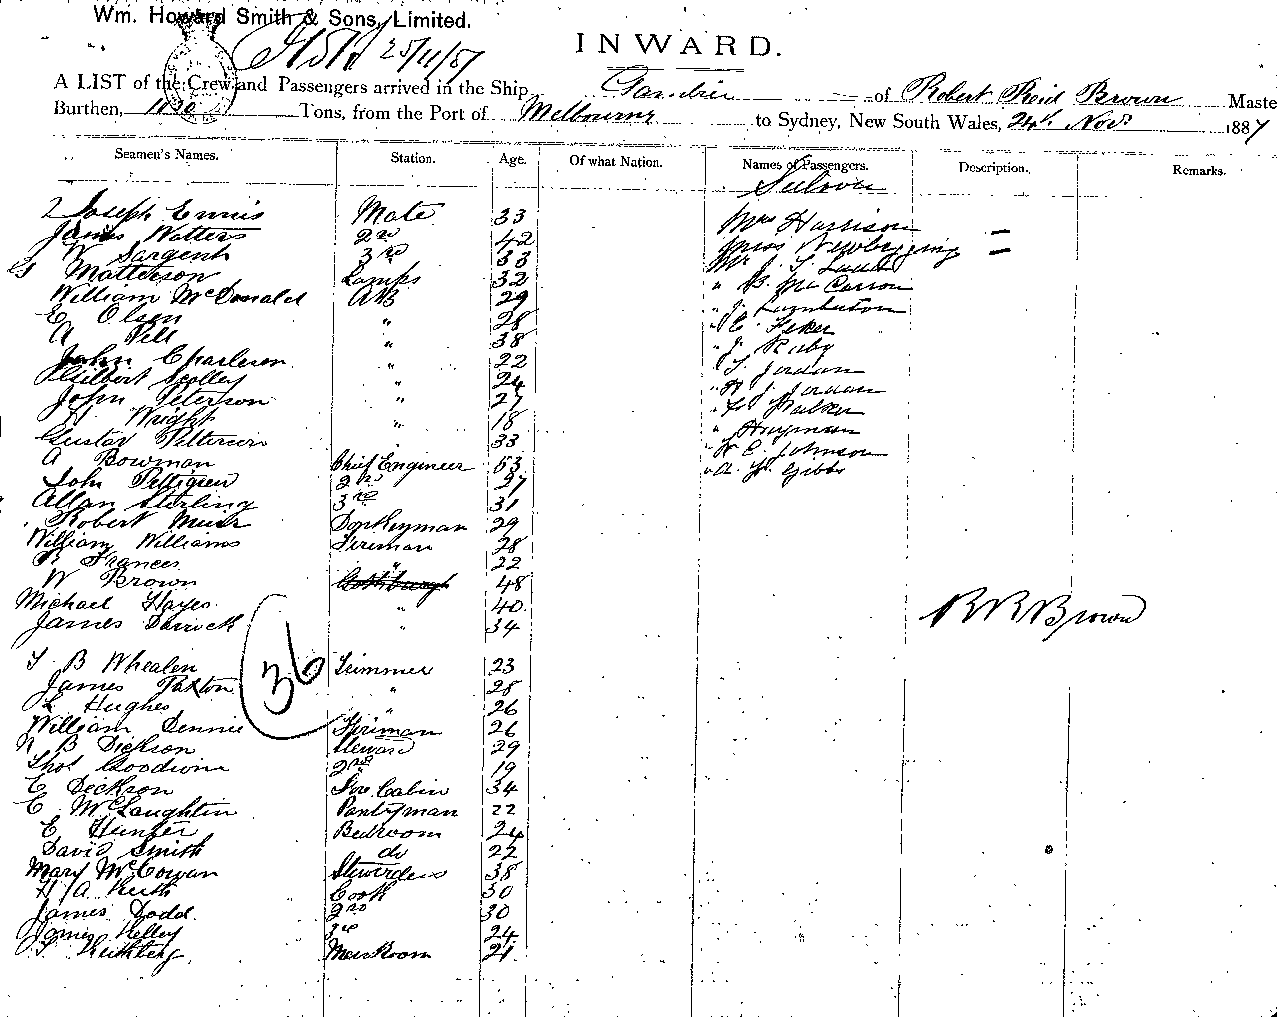 Wm. Howard Smith & Sons, Limited.
25/11/87
INWARD.
A LIST of the Crew and Passengers arrived in the Ship Gambier of Robert Reid Brown Maste
Burthen, Tons, from the Port of Melbourne to Sydney, New South Wales, 24th Novr 1887
Seamen's Names. Station. Age. Of what Nation. Names of Passengers. Description. Remarks.
Saloon
Joseph Ennis Mate 33 Mrs Harrison
James Watters 2nd 42 Miss Newbigging
W Sargent 3rd 33 Mr
Matterson Lamps 32 " McCarron
William McDonald AB 29 " J.
E Olsen " 28 "
A " 38 " J. Raby
John Charleson " 22 " T. Jordan
Gilbert Scolley " 24 " J. Jordan
John Peterson " 27 " Parker
Wright " 18 " Hayman
Gustav Petterson 33 " W E. Johnson
A Bowman Chief Engineer 53 " A. Gibbs
John Pettigrew 2nd 27
Allan Sterling 3rd 31
Robert Muir Donkeyman 29
William Williams Fireman 28
R Frances " 22
W Brown 48
Michael Hayes " 40
James Derrick " 34
R R Brown
36
T B Whealen Trimmer 23
James Paxton " 28
L Hughes " 26
William Dennis Fireman 26
B Dickson Steward 29
Thos Goodwin 2nd 19
E Dickson Fore Cabin 34
E McLaughlin Pantryman 22
E Hunter Bedroom 24
David Smith do 22
Mary McCowan Stewardess 38
H A Keith Cook 30
James Dodd 2nd 30
James Kelley 3rd 24
Mess Room 21